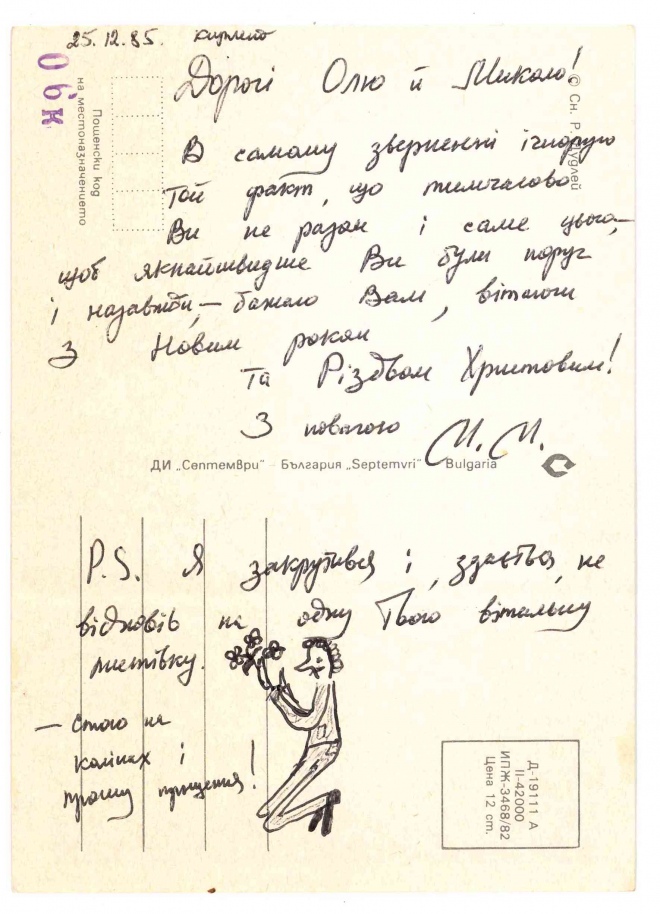 25.12.85.
Дорогі Олю й Миколо!
В самому зверненні ігнорую
той факт, що тимчасово
Ви не разом і саме цього,—
щоб якнайшвидше Ви були поруч
і назавжди,— бажаю Вам, вітаючи
З Новим роком
та Різдвом Христовим!
З повагою М.М.
ДИ „Септември" – България „Septemvri" Bulgaria
P.S. Я закрутився і, здається, не
відповів на одну Твою вітальну
листівку.
— стою на
колінах і
прошу прощення!
06к
Пощенски код
на местоназначението
© Сн. Р.
Д-19111 А
II-42000
ИПЖ-3468/82
Цена 12 ст.